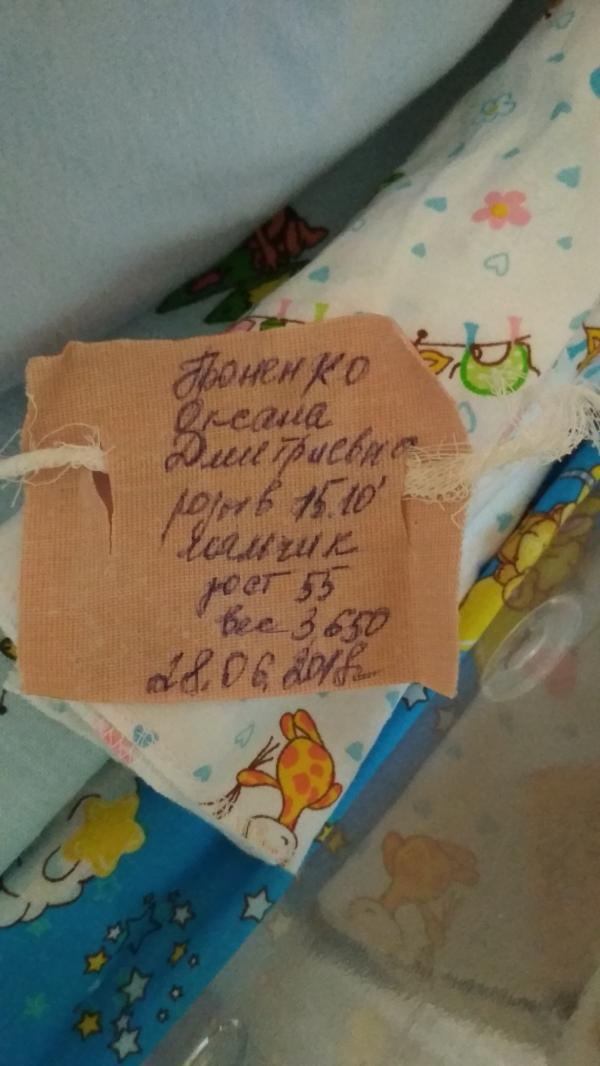 Проненко
Оксана
Дмитриевна
род в 15.10'
мальчик
рост 55
вес 3,650
28.06.2018г